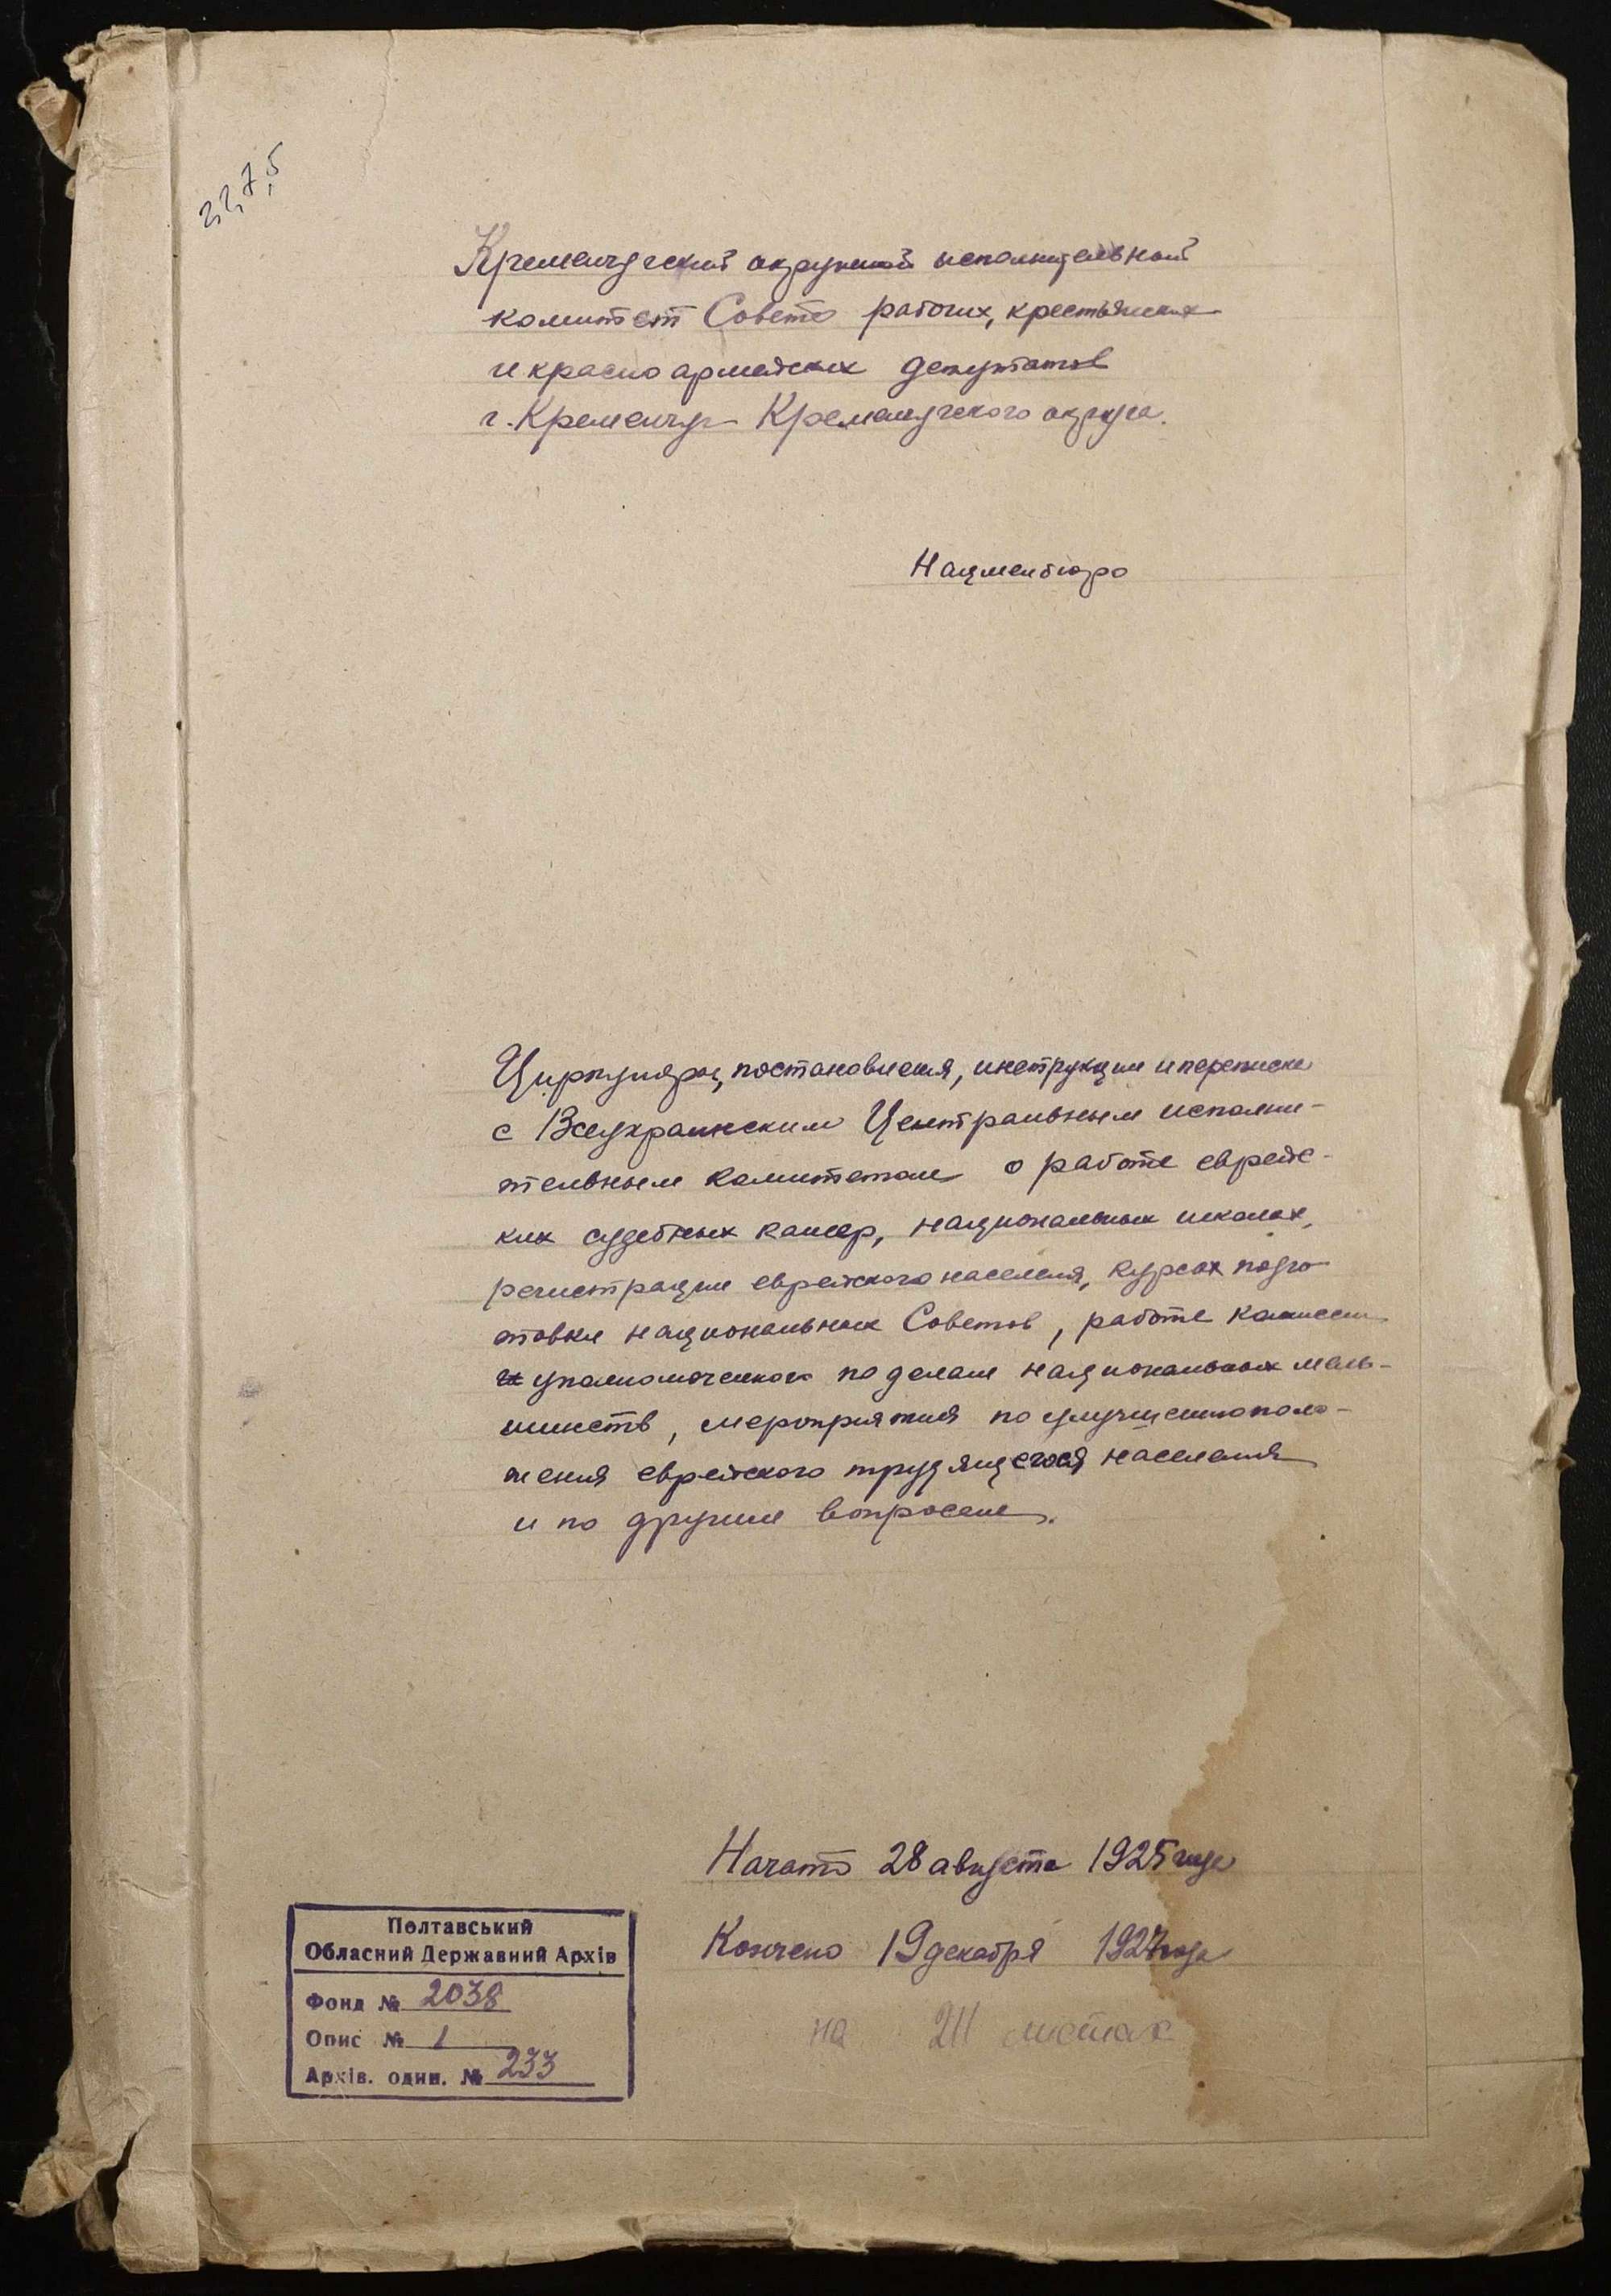 2,2,7,5
Кременчугский окружной исполнительный
комитет Совета рабочих, крестьянских
и красноармейских депутатов
г. Кременчуг Кременчугского округа.
Нацменбюро
Циркуляры, постановления, инструкции и переписка
с Всеукраинским Центральным исполни-
тельным комитетом о работе еврейс-
ких судебных камер, национальных школах,
регистрации еврейского населения, курсах подго-
товки национальных Советов, работе комиссии
уполномоченного по делам национальных мень-
шинств, мероприятия по улучшению поло-
жения еврейского трудящегося населения
и по другим вопросам.
Начато 28 августа 1925 года
Кончено 19 декабря 1927 года
на 211 листах
Полтавський
Обласний Державний Архів
Фонд № 2038
Опис № 1
Архів. один. № 233